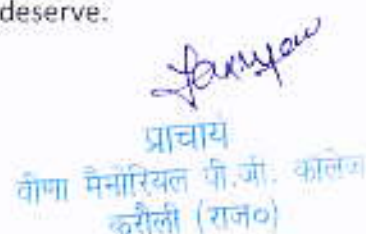 deserve.
प्राचार्य
वीणा मैमोरियल पी.जी. कालेज
करौली (राज०)